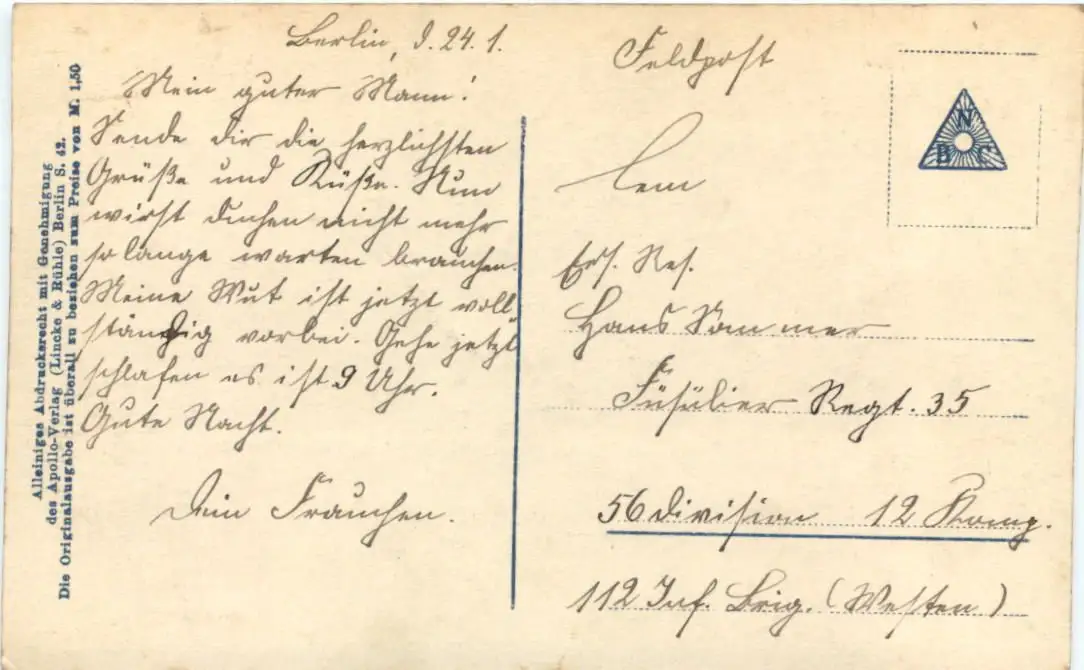 Berlin, d. 24.1.
Mein guter Mann!
Sende dir die herzlichsten
Grüße und Küße. Nun
wirst duchen nicht mehr
so lange warten brauchen.
Meine Wut ist jetzt voll
ständig vorbei. Gehe jetzt
schlafen es ist 9 Uhr.
Gute Nacht.
Dein Frauchen.
Feldpost
Ers. Res.
Hans Sommer
Füsilier Regt. 35
56 division 12 Komp.
112 Inf. Brig. (Westen)
N
B C
Alleiniges Abdrucksrecht mit Genehmigung
des Apollo-Verlag (Lincke & Rühle) Berlin S. 42.
Die Originalausgabe ist überall zu beziehen zum Preise von M. 1,50